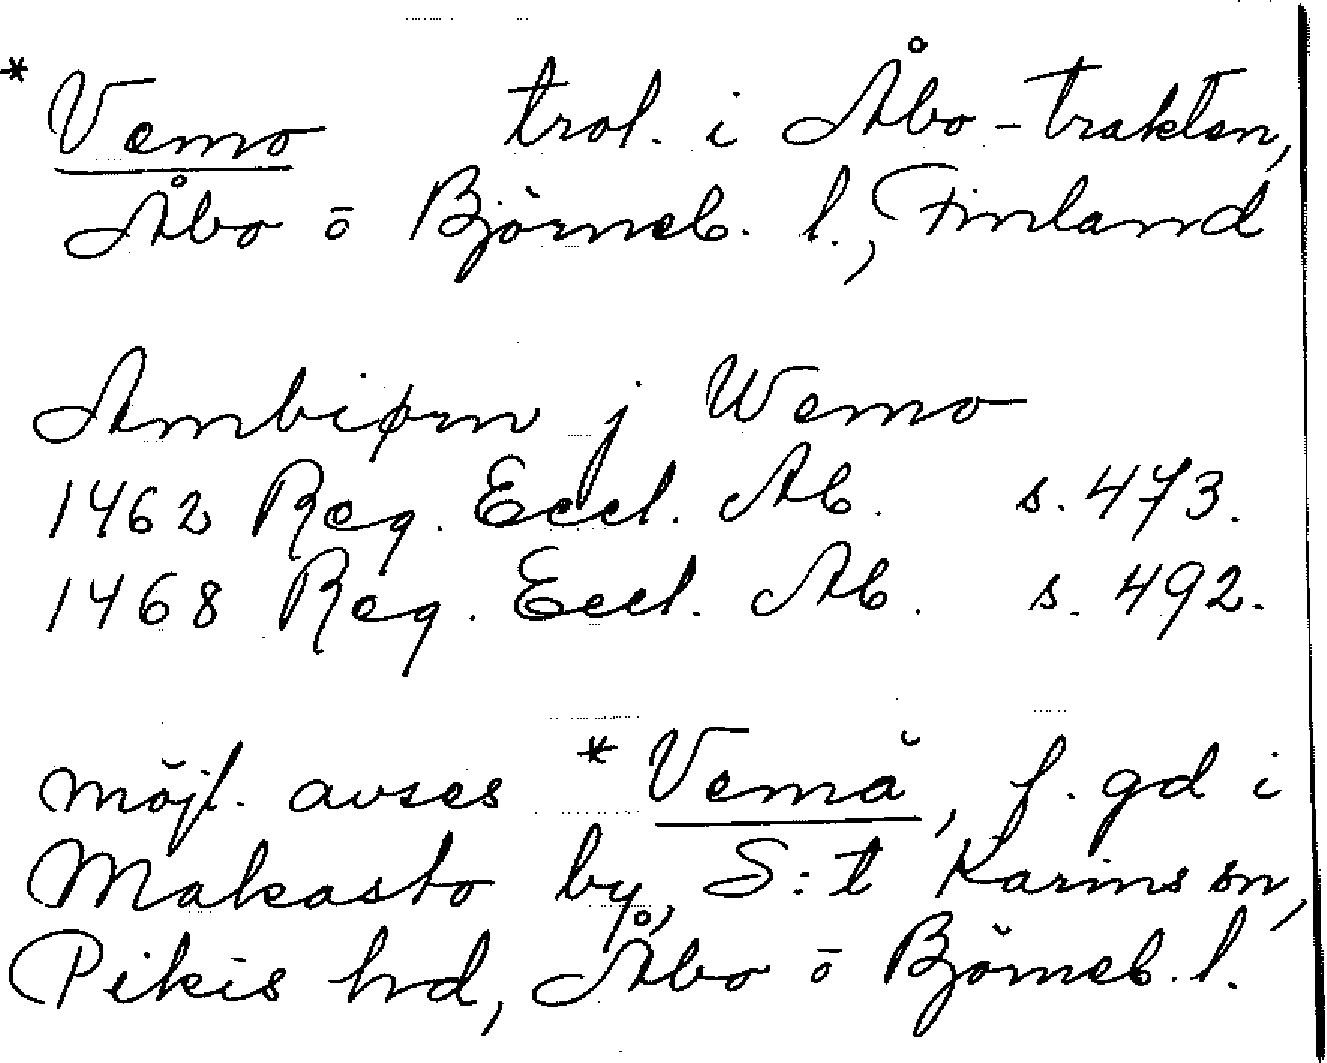 * Vemo trol. i Åbo-trakten,
Åbo o Björneb. l., Finland
Ambiørn j Wemo
1462 Reg. Eccl. Ab. s. 473.
1468 Reg. Eccl. Ab. s. 492.
möjl. avses *Vemä, f. gd i
Makasto by, S:t Karins sn,
Pikis hd, Åbo o Björneb. l.